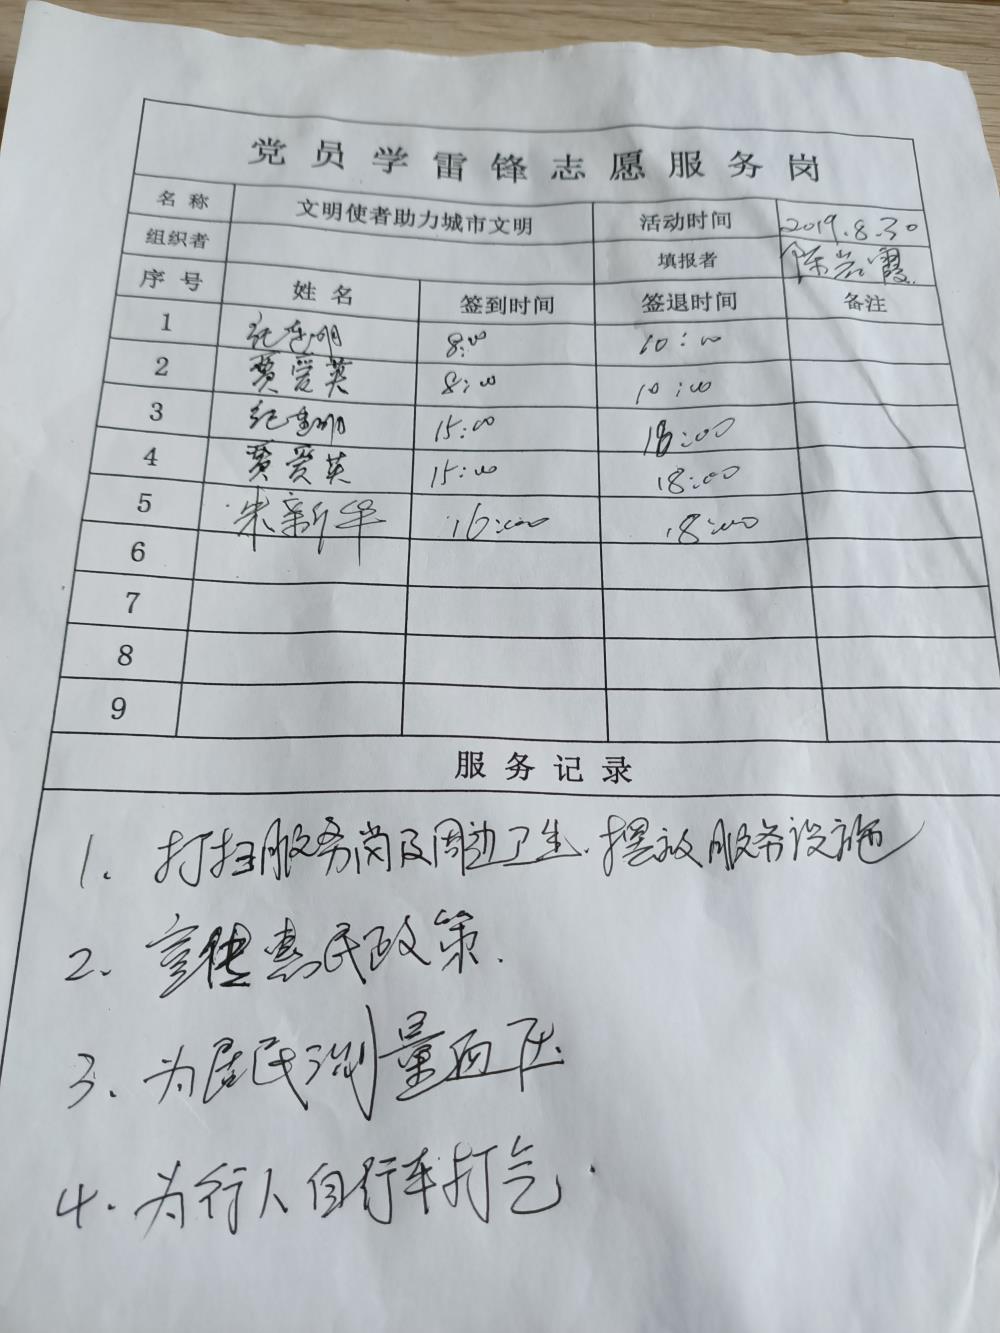 党员学雷锋志愿服务岗
名称 文明使者助力城市文明 活动时间 2019.8.30
组织者 填报者 陈岩霞
序号 姓名 签到时间 签退时间 备注
1 8:00 10:00
2 贾爱英 8:00 10:00
3 15:00 18:00
4 贾爱英 15:00 18:00
5 朱新华 16:00 18:00
6
7
8
9
服务记录
1. 打扫服务岗及周边卫生.摆放服务设施
2. 宣传惠民政策.
3. 为居民测量血压.
4. 为行人自行车打气.